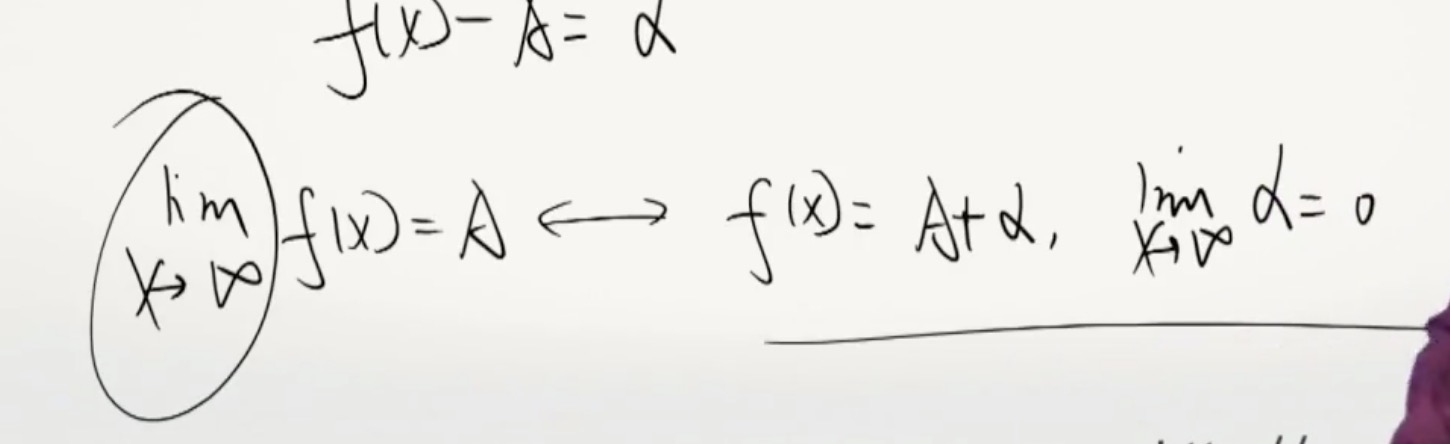 f(x) - A = α
lim x→∞ f(x) = A ⟷ f(x) = A + α, lim x→∞ α = 0